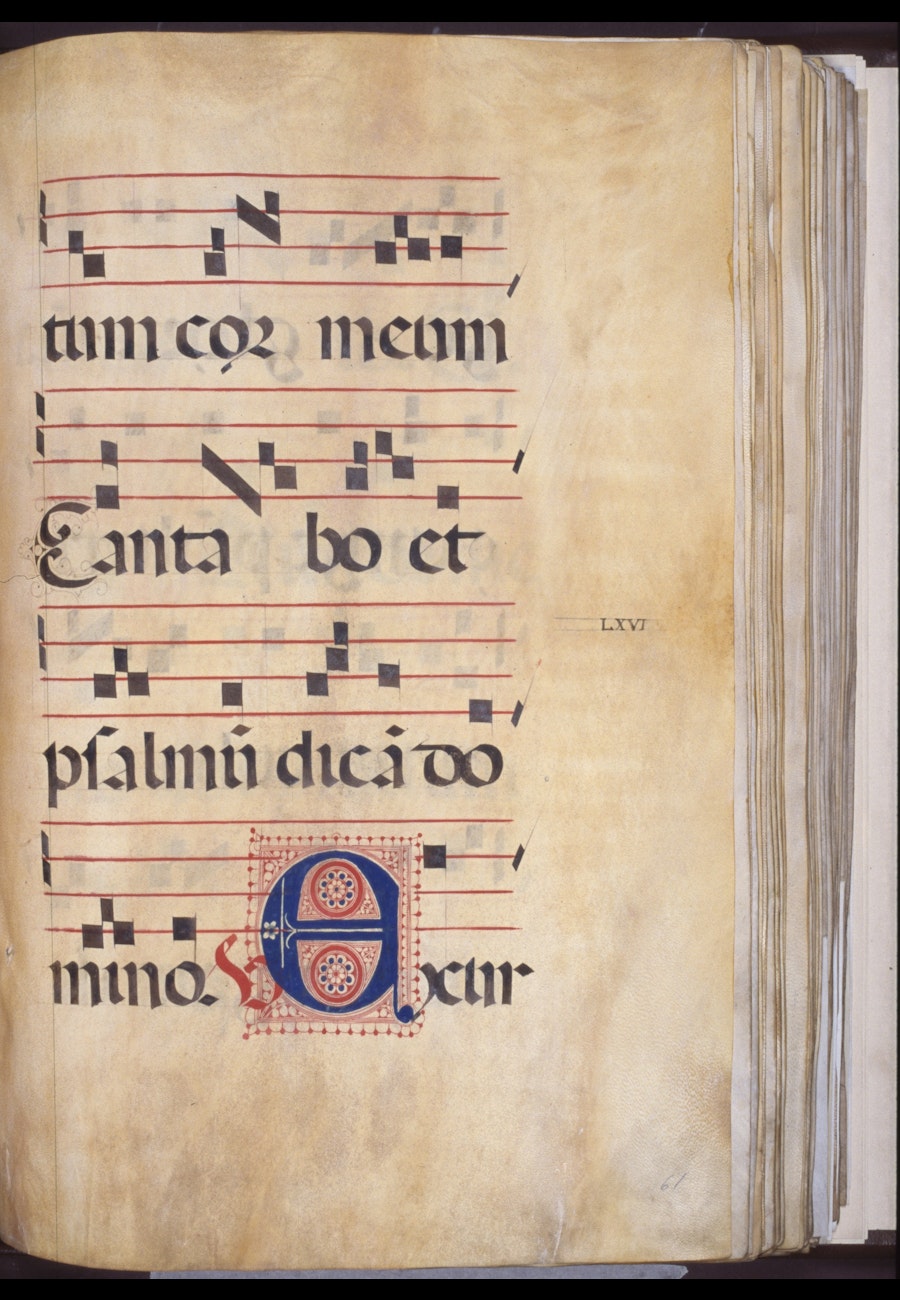 tum cor meum
Canta bo et
LXVI
psalmū dicā do
mino. V Exur
61